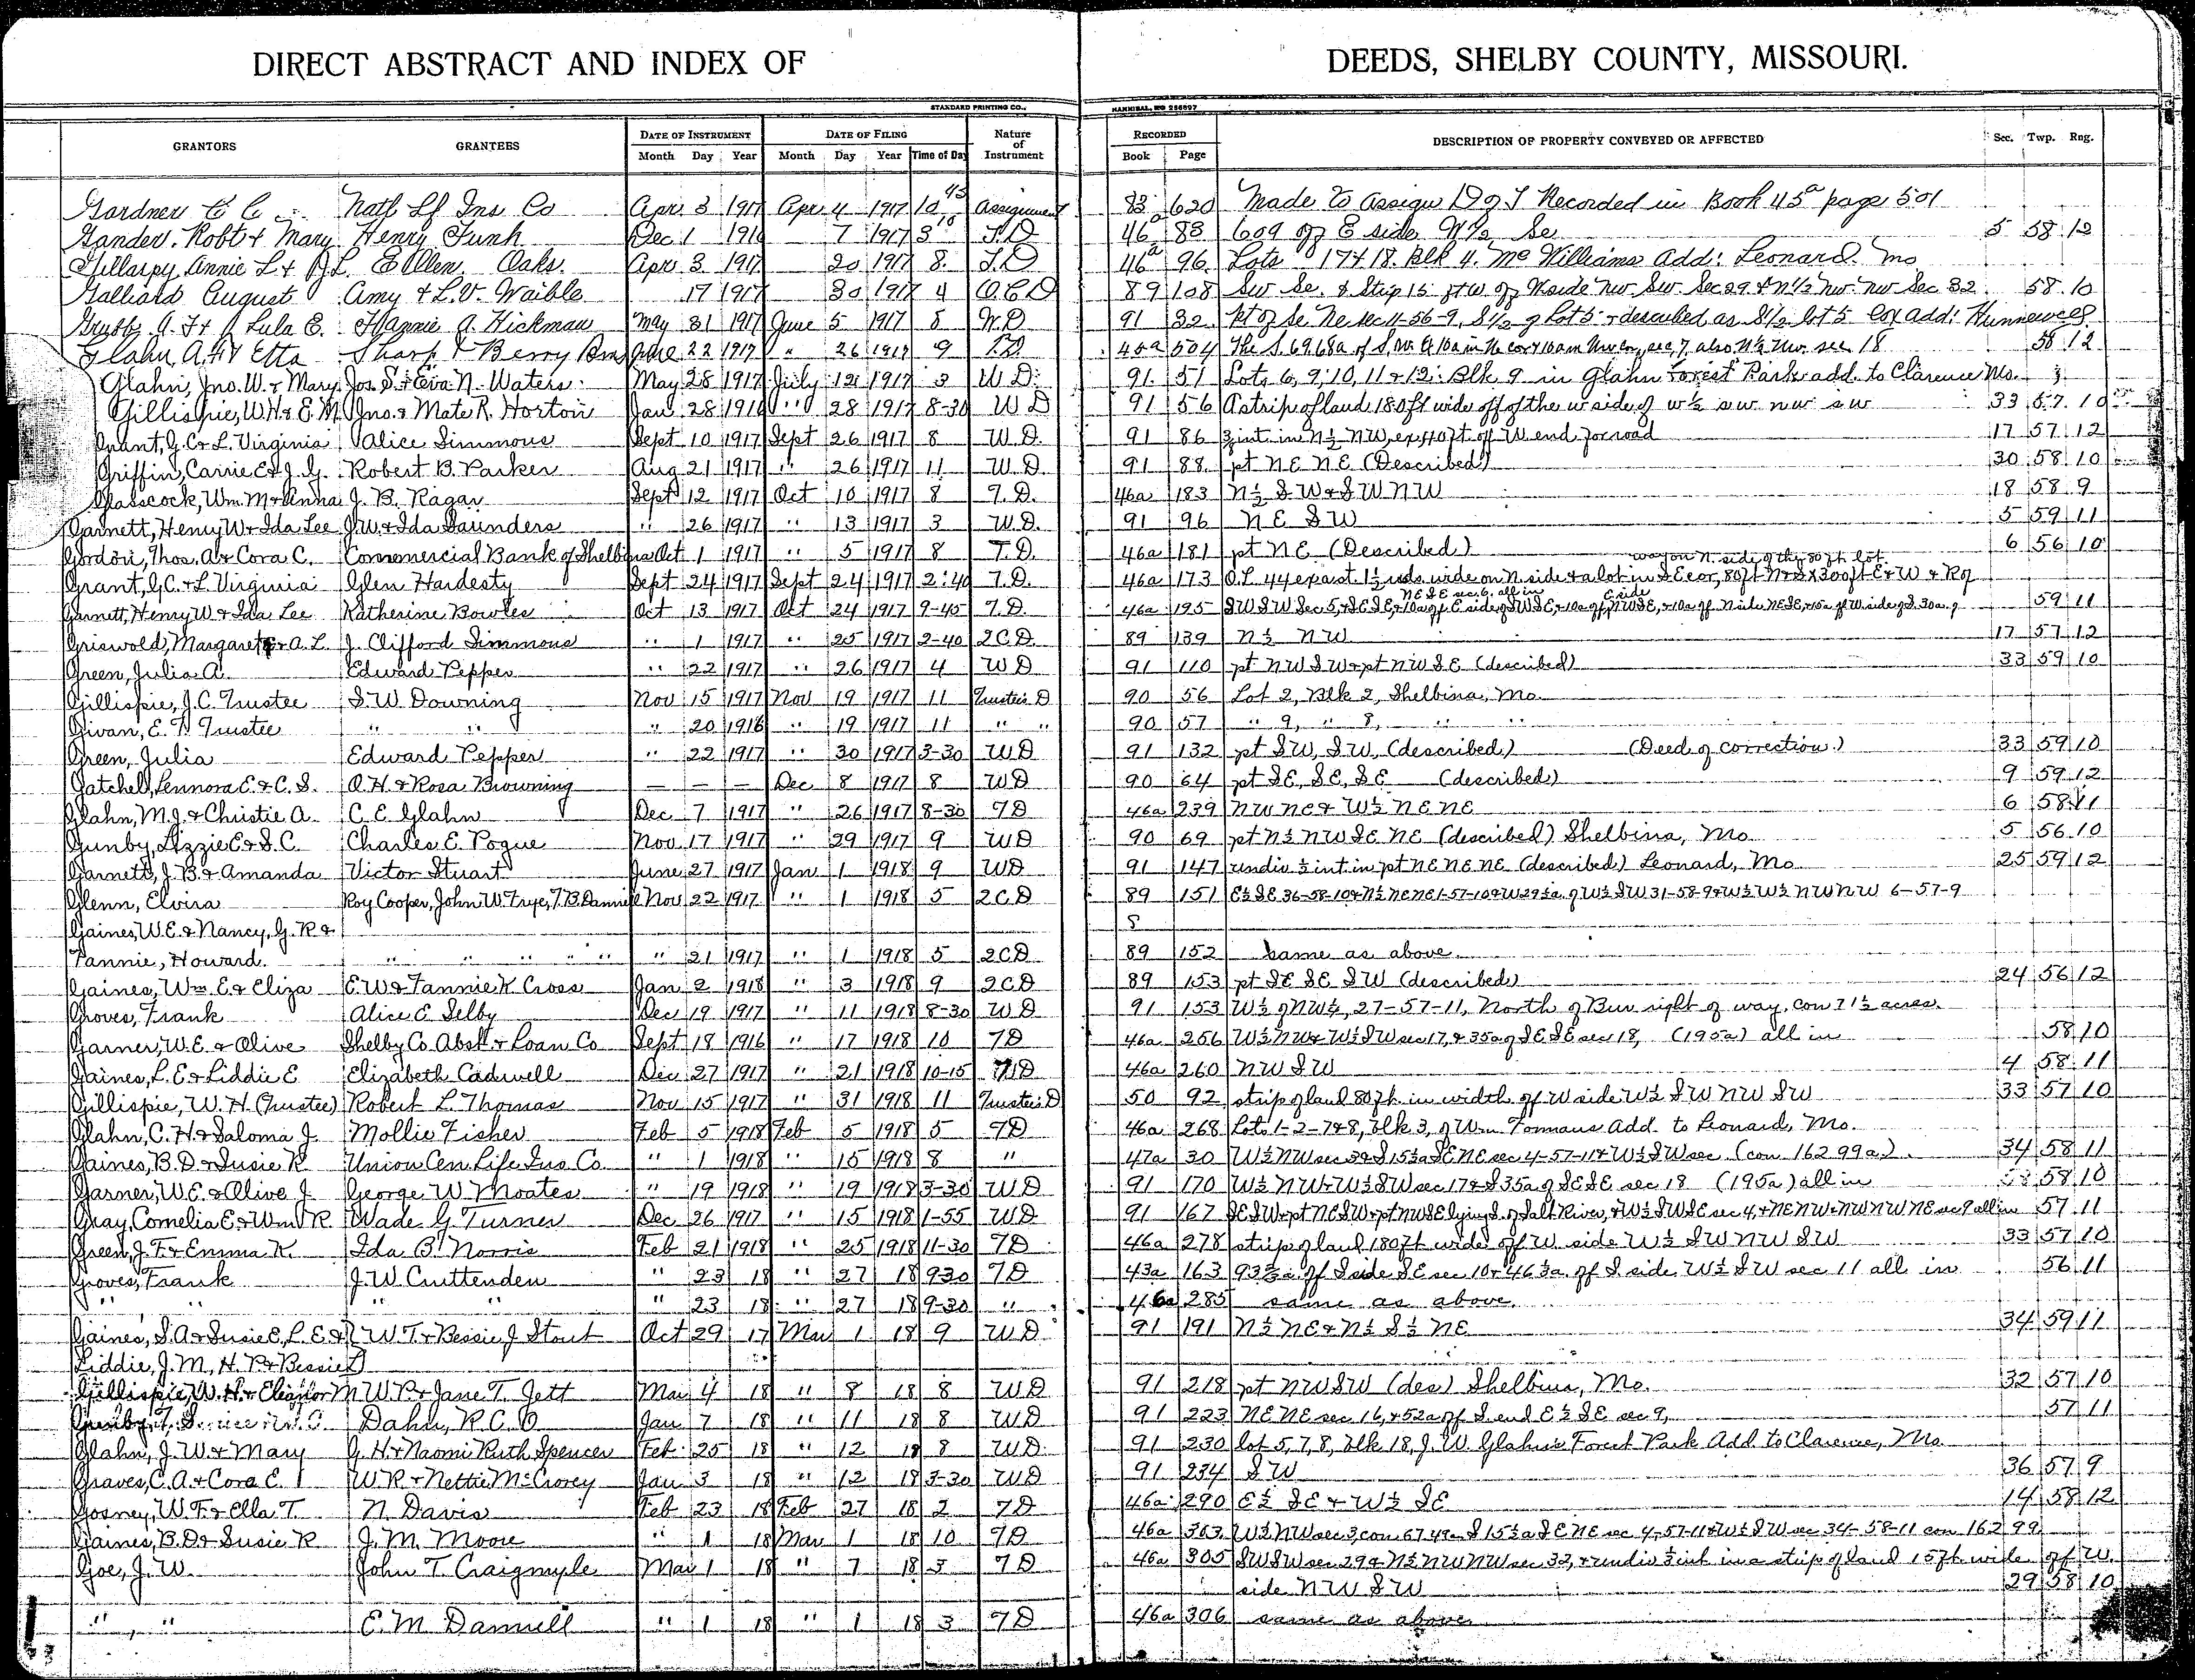 DIRECT ABSTRACT AND INDEX OF DEEDS, SHELBY COUNTY, MISSOURI.
STANDARD PRINTING CO., HANNIBAL, MO 256897
GRANTORS GRANTEES DATE OF INSTRUMENT DATE OF FILING Nature of Instrument RECORDED DESCRIPTION OF PROPERTY CONVEYED OR AFFECTED Sec. Twp. Rng.
Month Day Year Month Day Year Time of Day Book Page
Gardner C C Natl Lf Ins Co Apr 3 1917 Apr 4 1917 10 45 Assignment 83 620 Made to assign D of T Recorded in Book 45a page 501
Gander. Robt & Mary Henry Funk Dec 1 1916 7 1917 3 10 T.D 46a 83 60a off E side W½ Se 5 58 12
Gillaspy Annie L & J L E Allen Oaks. Apr 3 1917 20 1917 8 T.D 46a 96 Lots 17 & 18. Blk 4. McWilliams Add: Leonard. Mo
Galliard August Amy & L.V. Waible 17 1917 30 1917 4 Q C D 89 108 Sw Se. & Strip 15 ft W of Wside Nw. Sw. Sec 29 & N½ Nw. Nw Sec 32. 58. 10
A. F & Lula E. Hannie A. Hickman May 31 1917 June 5 1917 8 W.D 91 32 Pt of Se Ne sec 11-56-9, S½ of Lot 5 & described as S½ lot 5 Cox add: Hunnewell
Glahn, A. F & Etta Sharp & Berry Bros June 22 1917 " 26 1917 9 T.D. 45a 504 The S. 69.68a of S, sec. 7, also N½ Nw. sec. 18 58 12
Glahn, Jno. W. & Mary Jos. S. & Eva N. Waters May 28 1917 July 12 1917 3 W D. 91 51 Lots 6, 9, 10, 11 & 12. Blk 9 in Glahn Forest Park add. to Clarence Mo.
Gillispie, W.H. & E.M. Jno. & Mate R. Horton Jan 28 1916 " 28 1917 8-30 W D 91 56 A strip of land 180 ft wide off of the w side of w½ s w. n w s w 33 57 10
Grant, G. C. & L. Virginia Alice Simmons Sept 10 1917 Sept 26 1917 8 W.D. 91 86 int. in N½ NW, ex 40 ft off W end for road 17 57 12
Griffin, Carrie E & J. G. Robert B. Parker Aug 21 1917 " 26 1917 11 W.D. 91 88 pt NE NE (Described) 30 58 10
Glasscock, Wm. M & Anna J. B. Ragar Sept 12 1917 Oct 10 1917 8 T.D. 46a 183 N½ SW & SW NW 18 58 9
Garnett, Henry W & Ida Lee J.W. & Ida Saunders " 26 1917 " 13 1917 3 W.D. 91 96 NE SW 5 59 11
Gordon, Thos. A & Cora C. Commercial Bank of Shelbina Oct 1 1917 " 5 1917 8 T.D. 46a 181 pt NE (Described) 6 56 10
way on N. side of the 80 ft lot
Grant, G.C. & L. Virginia Glen Hardesty Sept 24 1917 Sept 24 1917 2:40 T.D. 46a 173 O.L. 44 ex a st. 1½ rods wide on N. side & a lot in SE cor, 80 ft N & S X 300 ft E & W & R of
NE SE sec. 6. all in E side
Garnett, Henry W & Ida Lee Katherine Bowles Oct 13 1917 Oct 24 1917 9-45 T.D. 46a 195 SW SW Sec 5, & SE SE, & 10a off E side of SW SE, & 10a off NW SE, & 10a off N side NE SE, & 15a off W side of S. 30a. of 59 11
Griswold, Margaret & A. L. J. Clifford Simmons " 1 1917 " 25 1917 2-40 2CD 89 139 N½ NW 17 57 12
Green, Julia A. Edward Pepper " 22 1917 " 26 1917 4 WD 91 110 pt NW SW & pt NW SE (described) 33 59 10
Gillispie, J.C. Trustee S.W. Downing Nov 15 1917 Nov 19 1917 11 Trustee's D 90 56 Lot 2, Blk 2, Shelbina, Mo.
Givan, E. T. Trustee " " " 20 1916 " 19 1917 11 " " 90 57 " 9, " 8, " "
Green, Julia Edward Pepper " 22 1917 " 30 1917 3-30 WD 91 132 pt SW, SW, (described) (Deed of correction.) 33 59 10
Gatchel, Lennora E. & C. S. O. H. & Rosa Browning — — — Dec 8 1917 8 WD 90 64 pt SE, SE, SE (described) 9 59 12
Glahn, M. J. & Christie A. C. E. Glahn Dec 7 1917 " 26 1917 8-30 TD 46a 239 NW NE & W½ NE NE 6 58 11
Gunby, Lizzie E & S. C. Charles E. Pogue Nov 17 1917 " 29 1917 9 WD 90 69 pt N½ NW SE NE (described) Shelbina, Mo 5 56 10
Garnett, J. B. & Amanda Victor Stuart June 27 1917 Jan 1 1918 9 WD 91 147 undiv ½ int in pt NE NE NE (described) Leonard, Mo 25 59 12
Glenn, Elvira Roy Cooper, John W. Frye, T. B. Damrell Nov 22 1917 " 1 1918 5 2CD 89 151 E½ SE 36-58-10 & N½ NE NE 1-57-10 & W 29½a. of W½ SW 31-58-9 & W½ W½ NW NW 6-57-9
Gaines, W.E. & Nancy, G. R & 8
Fannie, Howard. " " " " " " 21 1917 " 1 1918 5 2CD 89 152 same as above
Gaines, Wm. E. & Eliza E.W. & Fannie K Cross Jan 2 1918 " 3 1918 9 2CD 89 153 pt SE SE SW (described) 24 56 12
Groves, Frank Alice E Selby Dec 19 1917 " 11 1918 8-30 WD 91 153 W½ of NW¼, 27-57-11, North of Bur right of way, con 71½ acres.
Garner, W.E. & Olive Shelby Co. Abst. & Loan Co Sept 18 1916 " 17 1918 10 TD 46a 256 W½ NW & W½ SW sec 17, & 35a of SE SE sec 18, (195a) all in 58 10
Gaines, L. E & Liddie E Elizabeth Cadwell Dec 27 1917 " 21 1918 10-15 TD 46a 260 NW SW 4 58 11
Gillispie, W. H. (Trustee) Robert L. Thomas Nov 15 1917 " 31 1918 11 Trustee's D 50 92 strip of land 80 ft in width of W side W½ SW NW SW 33 57 10
Glahn, C. H. & Saloma J. Mollie Fisher Feb 5 1918 Feb 5 1918 5 TD 46a 268 Lots 1-2-7 & 8, blk 3, of Wm Formans Add. to Leonard, Mo.
Gaines, B. D. & Susie R Union Cen. Life Ins. Co. " 1 1918 " 15 1918 8 " 47a 30 W½ NW sec 3 & S 15½a SE NE sec 4-57-11 & W½ SW sec (con 162 99a) 34 58 11
Garner, W.E. & Olive J. George W. Moates " 19 1918 " 19 1918 3-30 WD 91 170 W½ NW & W½ SW sec 17 & S 35a of SE SE sec 18 (195a) all in 58 10
Gray, Cornelia E & Wm R. Wade G. Turner Dec 26 1917 " 15 1918 1-55 WD 91 167 SE SW & pt NE SW & pt NW SE lying S. of Salt River, & W½ SW SE sec 4, & NE NW & NW NW NE sec 9 all in 57 11
Green, J. F. & Emma K. Ida B. Norris Feb 21 1918 " 25 1918 11-30 TD 46a 278 strip of land 180 ft wide off W. side W½ SW NW SW 33 57 10
Groves, Frank J.W. Cruttenden " 23 18 " 27 18 9-30 TD 43a 163 93⅔a. off S side SE sec 10 & 46⅓a. off S side W½ SW sec 11 all in 56 11
" " " " " 23 18 " 27 18 9-30 " 46a 285 same as above.
Gaines, S. A & Susie E, L. E & W. T. & Bessie J Stout Oct 29 17 Mar 1 18 9 WD 91 191 N½ NE & N½ S½ NE 34 59 11
Liddie, J. M, H. P & Bessie L
Gillispie, W. H. & Eleanor M W. P. & Jane T. Jett Mar 4 18 " 8 18 8 WD 91 218 pt NW SW (des) Shelbina, Mo. 32 57 10
Dahn, R. C. O Jan 7 18 " 11 18 8 WD 91 223 NE NE sec 16, & 52a off S end E½ SE sec 9, 57 11
Glahn, J. W. & Mary G. H. & Naomi Ruth Spencer Feb 25 18 " 12 18 8 WD 91 230 lot 5, 7, 8, blk 18, J. W. Glahn's Forest Park Add. to Clarence, Mo.
Graves, C. A. & Cora E. W. R. & Nettie McCrorey Jan 3 18 " 12 18 3-30 WD 91 234 SW 36 57 9
Gosney, W. F. & Ella T. N. Davis Feb 23 18 Feb 27 18 2 TD 46a 290 E½ SE & W½ SE 14 58 12
Gaines, B. D. & Susie R J. M. Moore " 1 18 Mar 1 18 10 TD 46a 303 W½ NW sec 3, con 67 49a S 15½a SE NE sec 4-57-11 & W½ SW sec 34-58-11 con 162 99
Goe, J. W. John T. Craigmyle Mar 1 18 " 7 18 3 TD 46a 305 SW SW sec 29 & N½ NW NW sec 32, & undiv ½ int in a strip of land 15 ft wide off W.
side NW SW 29 58 10
" " E. M. Damrell " 1 18 " 1 18 3 TD 46a 306 same as above